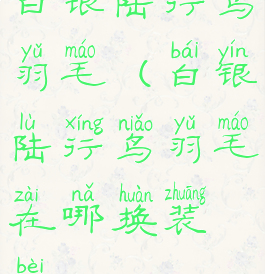 白银陆行鸟
yǔ máo bái yín
羽毛(白银
lù xíng niǎo yǔ máo
陆行鸟羽毛
zài nǎ huàn zhuāng
在哪换装
bèi